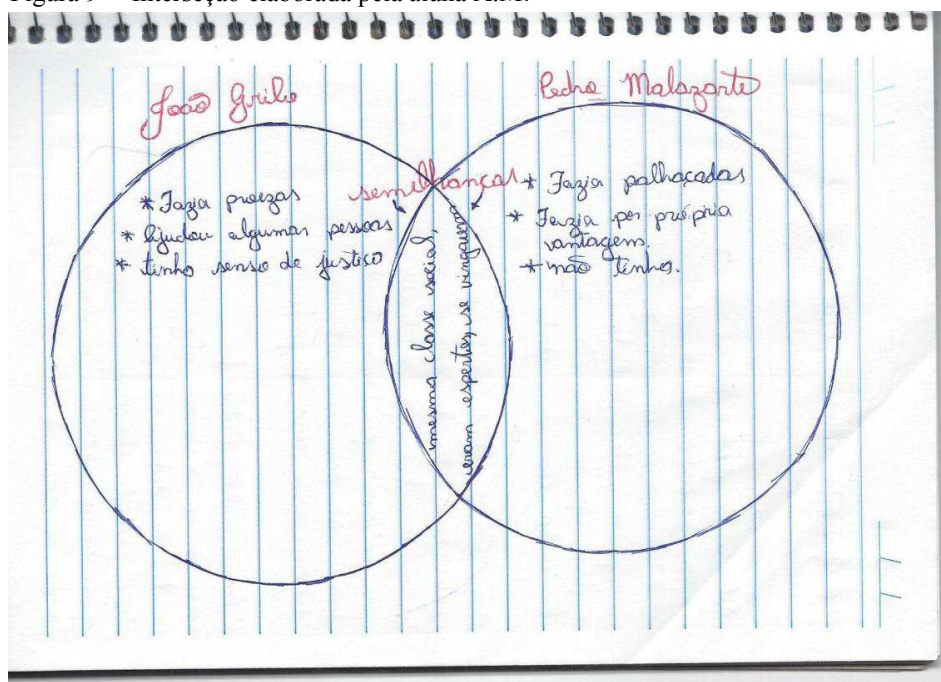 João Grilo
Pedro Malazarte
semelhanças
* Fazia proezas
* Ajudou algumas pessoas
* tinha senso de justiça
mesma classe social,
eram espertos, se vingavam
* Fazia palhaçadas
* Fazia por própria
vantagem.
* não tinha.